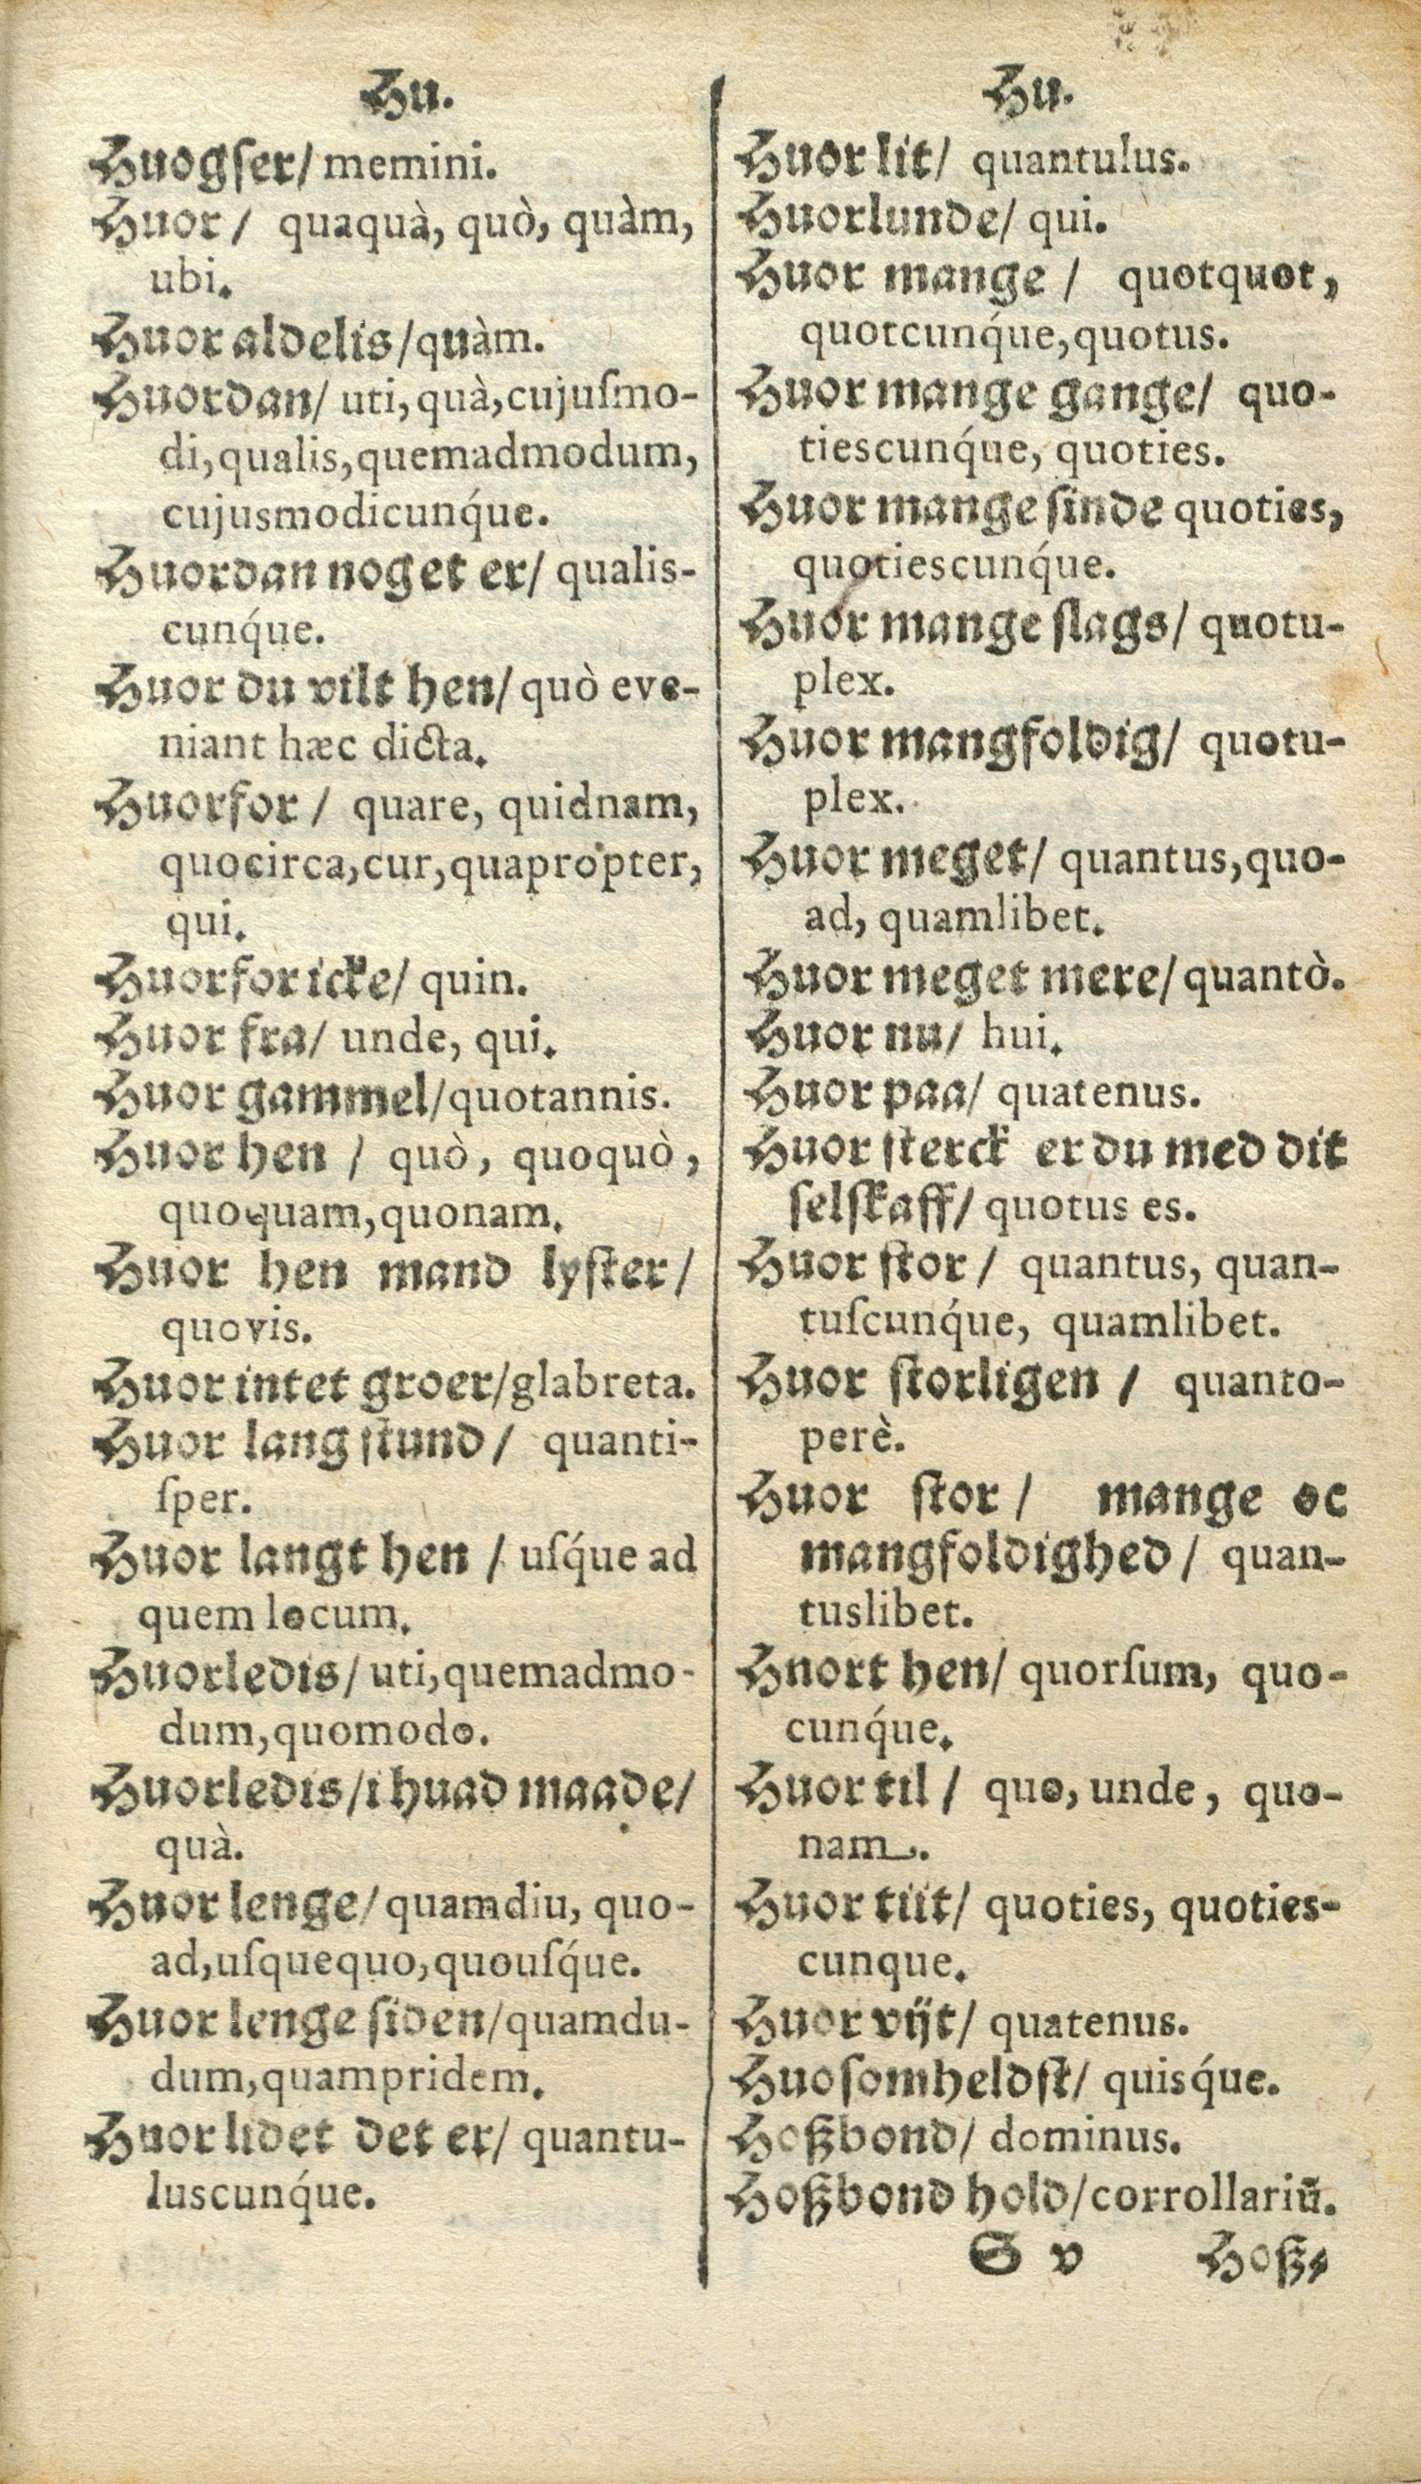 Hu.
Huogſer/ memini.
Huor/ quaquà, quò, quàm,
ubi.
Huor aldelis/quàm.
Huordan/ uti, quà, cujuſmo-
di, qualis, quemadmodum,
cujusmodicunq́ue.
Huordan noget er/ qualis-
cunq́ue.
Huor du vilt hen/ quò eve-
niant hæc dicta.
Huorfor/ quare, quidnam,
quocirca, cur, quapropter,
qui.
Huorfor icke/ quin.
Huor fra/ unde, qui.
Huor gammel/quotannis.
Huor hen / quò, quoquò,
quoquam, quonam.
Huor hen mand lyſter/
quovis.
Huor intet groer/glabreta.
Huor lang ſtund/ quanti-
ſper.
Huor langt hen / uſq́ue ad
quem locum.
Huorledis/ uti, quemadmo-
dum, quomodo.
Huorledis/i huad maade/
quà.
Huor lenge/ quamdiu, quo-
ad, uſquequo, quouſq́ue.
Huor lenge ſiden/quamdu-
dum, quampridem.
Huor lidet det er/ quantu-
luscunq́ue.
Hu.
Huor lit/ quantulus.
Huorlunde/ qui.
Huor mange / quotquot,
quotcunq́ue, quotus.
Huor mange gange/ quo-
tiescunq́ue, quoties.
Huor mange ſinde quoties,
quotiescunq́ue.
Huor mange ſlags/ quotu-
plex.
Huor mangfoldig/ quotu-
plex.
Huor meget/ quantus, quo-
ad, quamlibet.
Huor meget mere/ quantò.
Huor nu/ hui.
Huor paa/ quatenus.
Huor ſterck er du med dit
ſelſkaff/ quotus es.
Huor ſtor/ quantus, quan-
tuſcunq́ue, quamlibet.
Huor ſtorligen / quanto-
perè.
Huor ſtor/ mange oc
mangfoldighed/ quan-
tuslibet.
Hnort hen/ quorſum, quo-
cunq́ue.
Huor til / quo, unde, quo-
nam.
Huor tiit/ quoties, quoties-
cunque.
Huor vijt/ quatenus.
Huoſomheldſt/ quisq́ue.
Hoßbond/ dominus.
Hoßbond hold/corrollariũ.
S v Hoß-